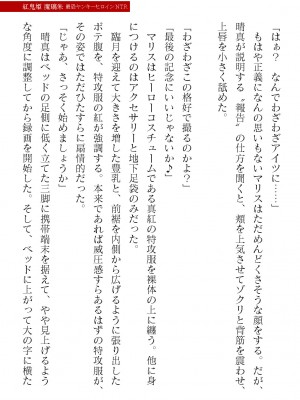 紅鬼姫 瑠璃珠 最凶ヤンキーヒロインNTR
「はぁ？　なんでわざわざアイツに……」
　もはや正義になんの思いもないマリスはただめんどくさそうな顔をする。だが、
晴真が説明する〝報告〟の仕方を聞くと、頬を上気させてゾクリと背筋を震わせ、
上唇を小さく舐めた。
「わざわざこの格好で撮るのかよ？」
「最後の記念にいいじゃないか♪」
　マリスはヒーローコスチュームである真紅の特攻服を裸体の上に纏う。他に身
につけるのはアクセサリーと地下足袋のみだった。
　臨月を迎えて大きさを増した豊乳と、前裾を内側から広げるように張り出した
ボテ腹を、特攻服の紅が強調する。本来であれば威圧感すらあるはずの特攻服が、
その姿ではただひたすらに扇情的だった。
「じゃあ、さっそく始めましょうか」
　晴真はベッドの足側に低く立てた三脚に携帯端末を据えて、やや見上げるよう
な角度に調整してから録画を開始した。そして、ベッドに上がって大の字に横た